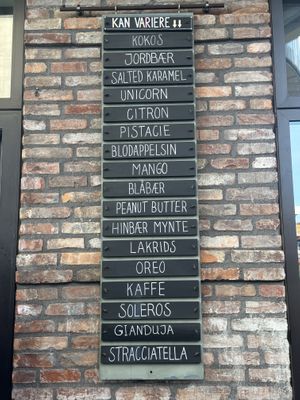 KAN VARIERE ↓↓
KOKOS
JORDBÆR
SALTED KARAMEL
UNICORN
CITRON
PISTACIE
BLODAPPELSIN
MANGO
BLÅBÆR
PEANUT BUTTER
HINBÆR MYNTE
LAKRIDS
OREO
KAFFE
SOLEROS
GIANDUJA
STRACCIATELLA